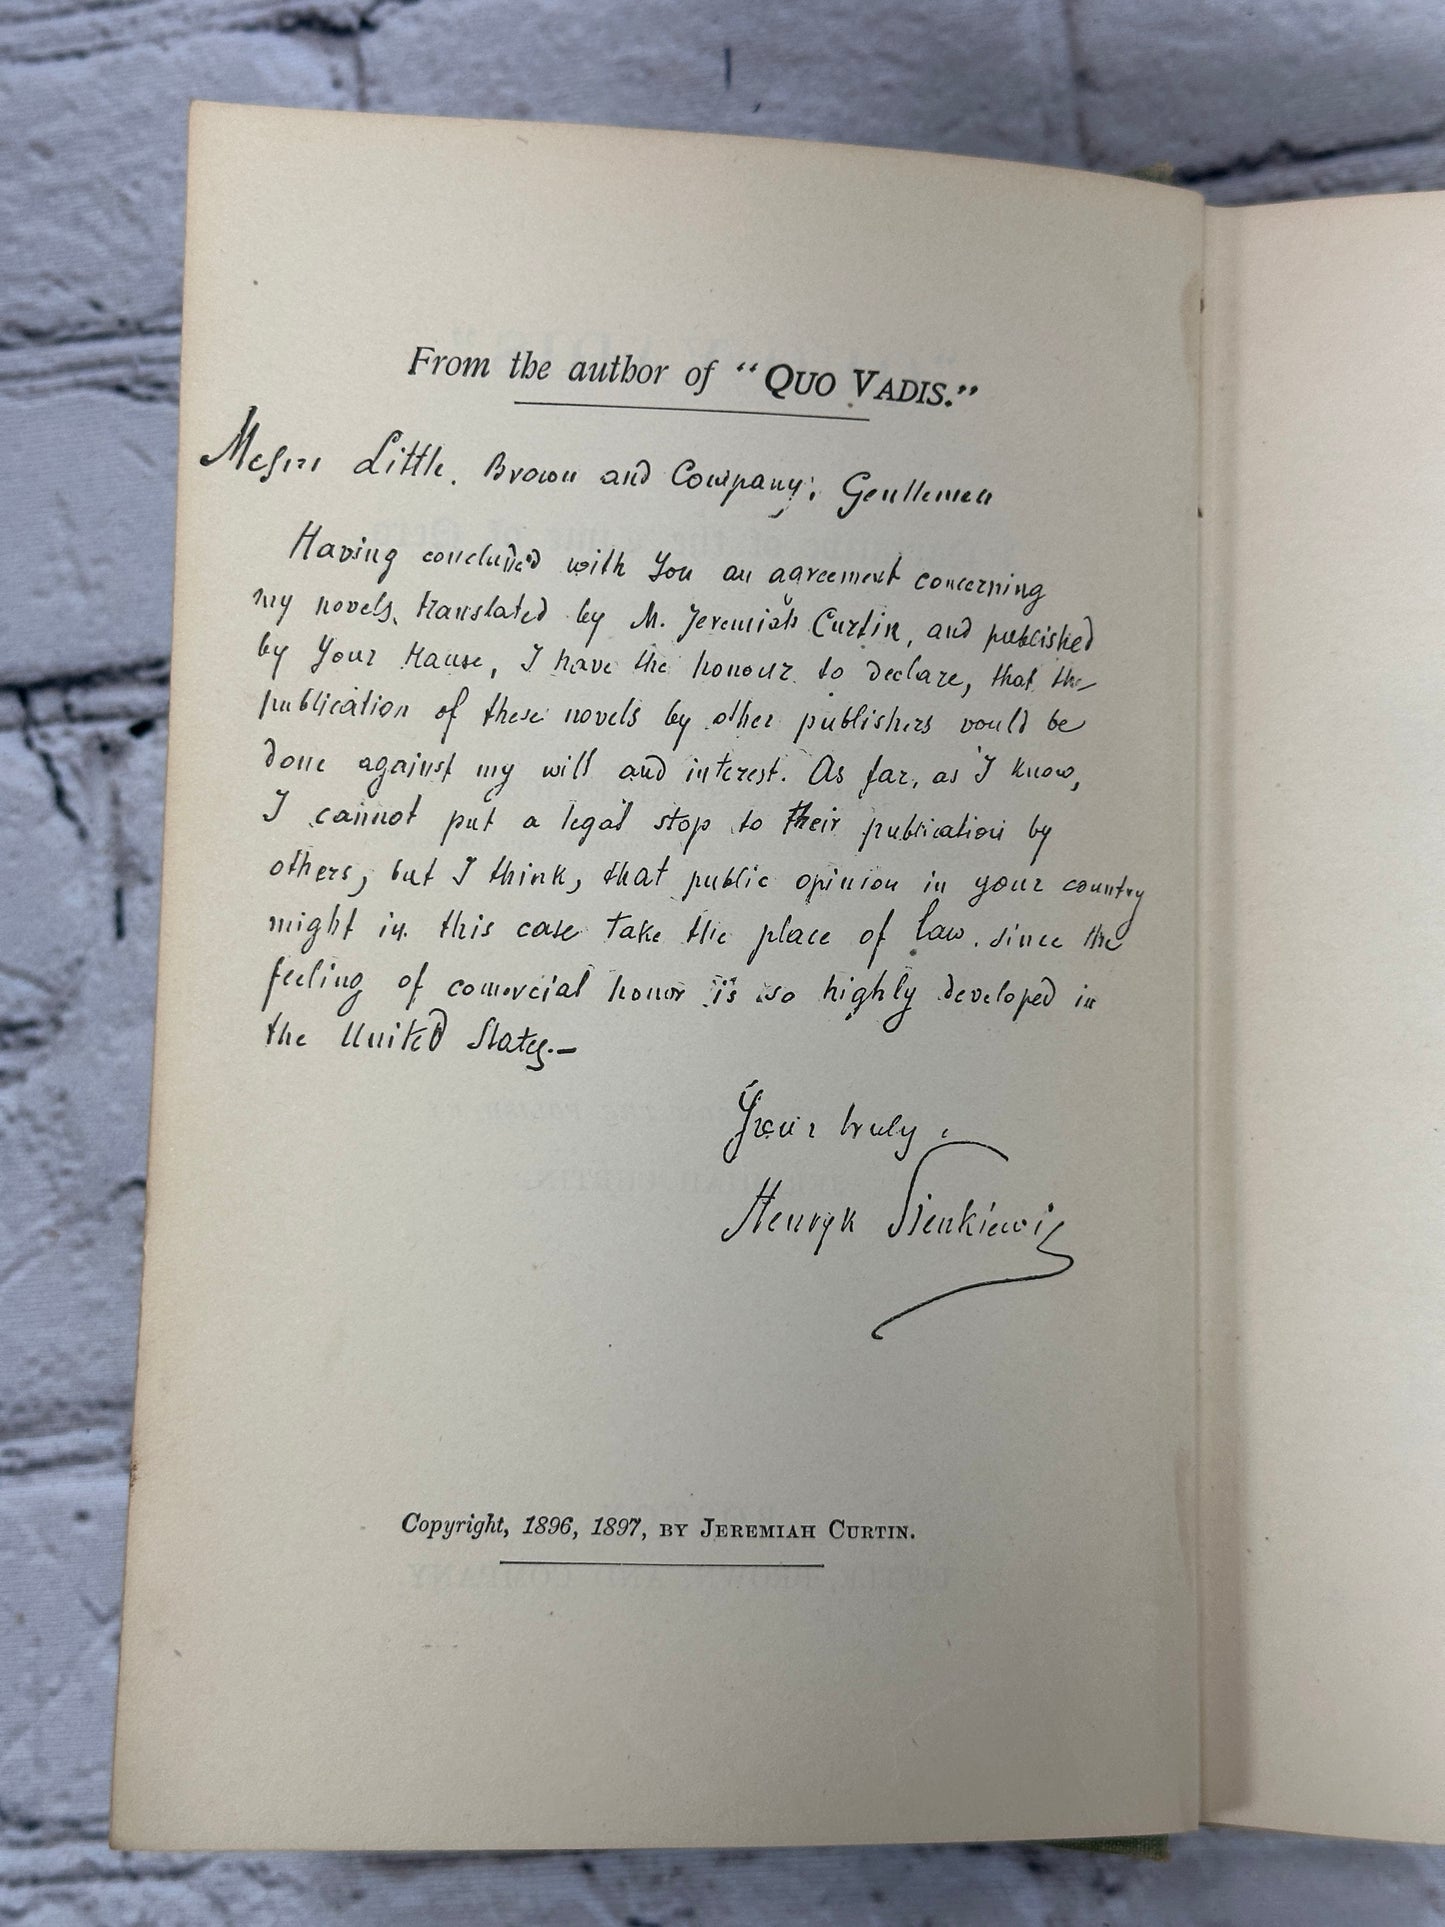 From the author of "QUO VADIS."
Messrs Little, Brown and Company; Gentlemen
Having concluded with You an agreement concerning
my novels, translated by M. Jeremiah Curtin, and published
by Your House, I have the honour to declare, that the
publication of these novels by other publishers would be
done against my will and interest. As far, as I know,
I cannot put a legal stop to their publication by
others, but I think, that public opinion in your country
might in this case take the place of law, since the
feeling of comercial honor is so highly developed in
the United States.—
Your truly,
Henryk Sienkiewicz
Copyright, 1896, 1897, BY JEREMIAH CURTIN.